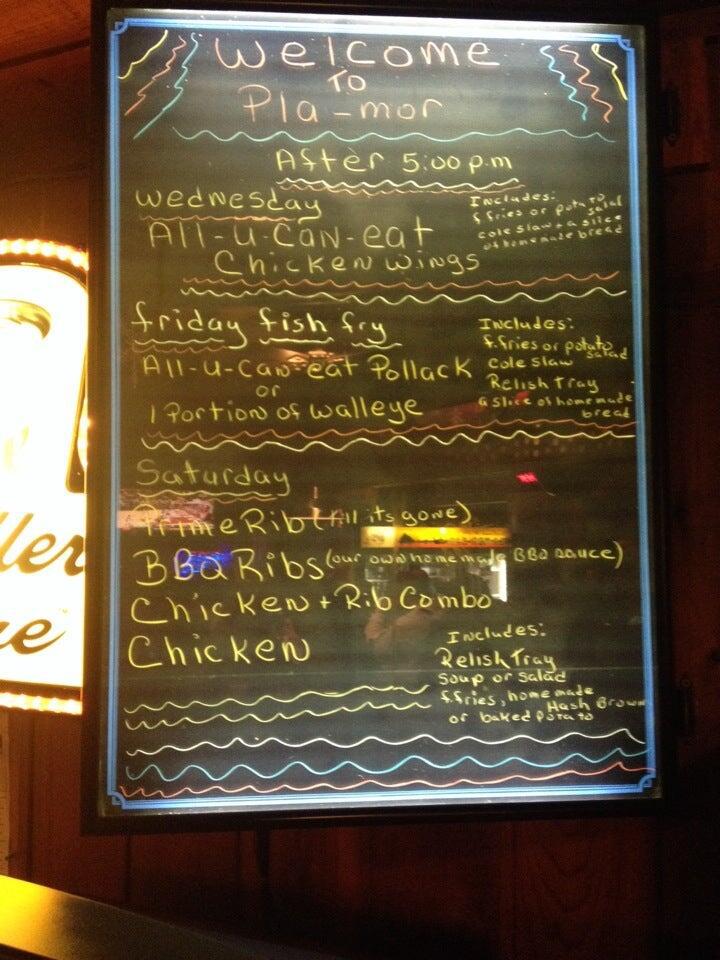 Welcome
To
Pla-mor
After 5:00 p.m
Wednesday
All-u-can-eat
Chicken wings
Includes:
f fries or potato salad
cole slaw + a slice
of homemade bread
friday fish fry
All-u-can-eat Pollack
or
1 Portion of walleye
Includes:
f.fries or potato salad
cole slaw
Relish Tray
a slice of homemade
bread
Saturday
Prime Rib (till its gone)
BBQ Ribs (our own homemade BBQ sauce)
Chicken + Rib Combo
Chicken
Includes:
Relish Tray
Soup or salad
f.fries, homemade
Hash Brown
or baked potato
ller